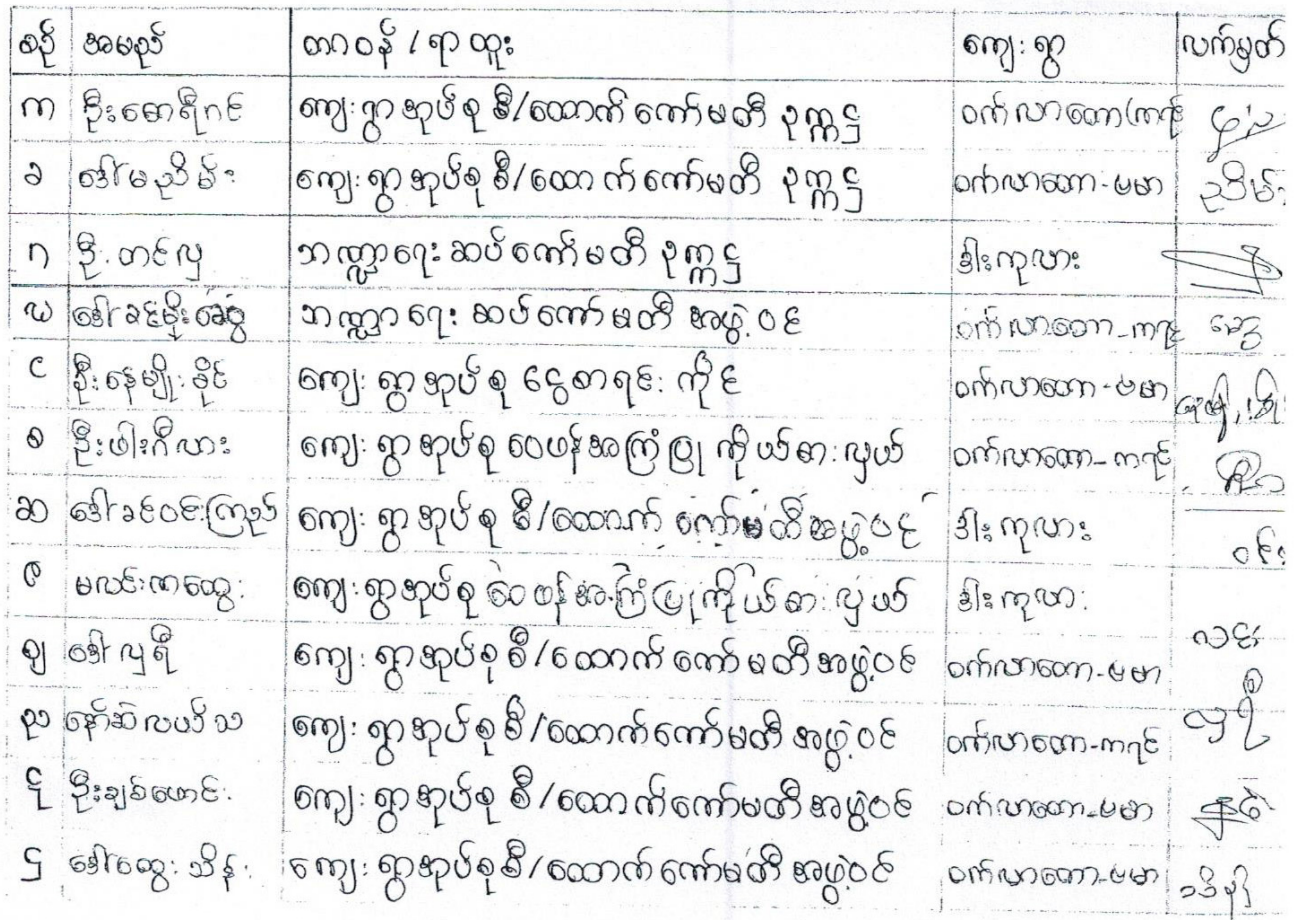 စဉ် အမည် တာဝန် / ရာထူး ကျေးရွာ လက်မှတ်
က ဦးစောရီဂင် ကျေးရွာအုပ်စု စီ/ထောက် ကော်မတီ ဥက္ကဋ္ဌ ဝက်လာတော(ကရင်
ခ ဒေါ်မညိမ်း ကျေးရွာအုပ်စု စီ/ထောက် ကော်မတီ ဥက္ကဋ္ဌ ဝက်လာတော-ဗမာ ညိမ်း
ဂ ဦးတင်လှ ဘဏ္ဍာရေးဆပ်ကော်မတီ ဥက္ကဋ္ဌ ဒါးကုလား
ဃ ဒေါ်ခင်မိုးဆွေ ဘဏ္ဍာရေးဆပ်ကော်မတီ အဖွဲ့ဝင် ဝက်လာတော-ကရင်
င ဦးနေမျိုးခိုင် ကျေးရွာအုပ်စု ငွေစာရင်းကိုင် ဝက်လာတော-ဗမာ
စ ဦးဖါးဂီလား ကျေးရွာအုပ်စု ဝေဖန်အကြံပြု ကိုယ်စားလှယ် ဝက်လာတော-ကရင်
ဆ ဒေါ်ခင်ဝင်းကြည် ကျေးရွာအုပ်စု စီ/ထောက် ကော်မတီအဖွဲ့ဝင် ဒါးကုလား ဝင်း
ဇ မလင်းလထွေး ကျေးရွာအုပ်စု ဝေဖန်အကြံပြုကိုယ်စားလှယ် ဒါးကုလား လင်း
ဈ ဒေါ်လှရီ ကျေးရွာအုပ်စု စီ/ထောက် ကော်မတီအဖွဲ့ဝင် ဝက်လာတော-ဗမာ လှရီ
ည နော်ဆဲလယ်သ ကျေးရွာအုပ်စု စီ/ထောက်ကော်မတီ အဖွဲ့ဝင် ဝက်လာတော-ကရင်
ဋ ဦးချစ်ဖောင်း ကျေးရွာအုပ်စု စီ/ထောက်ကော်မတီအဖွဲ့ဝင် ဝက်လာတော-ဗမာ
ဌ ဒေါ်ထွေးသိန်း ကျေးရွာအုပ်စု စီ/ထောက်ကော်မတီ အဖွဲ့ဝင် ဝက်လာတော-ဗမာ